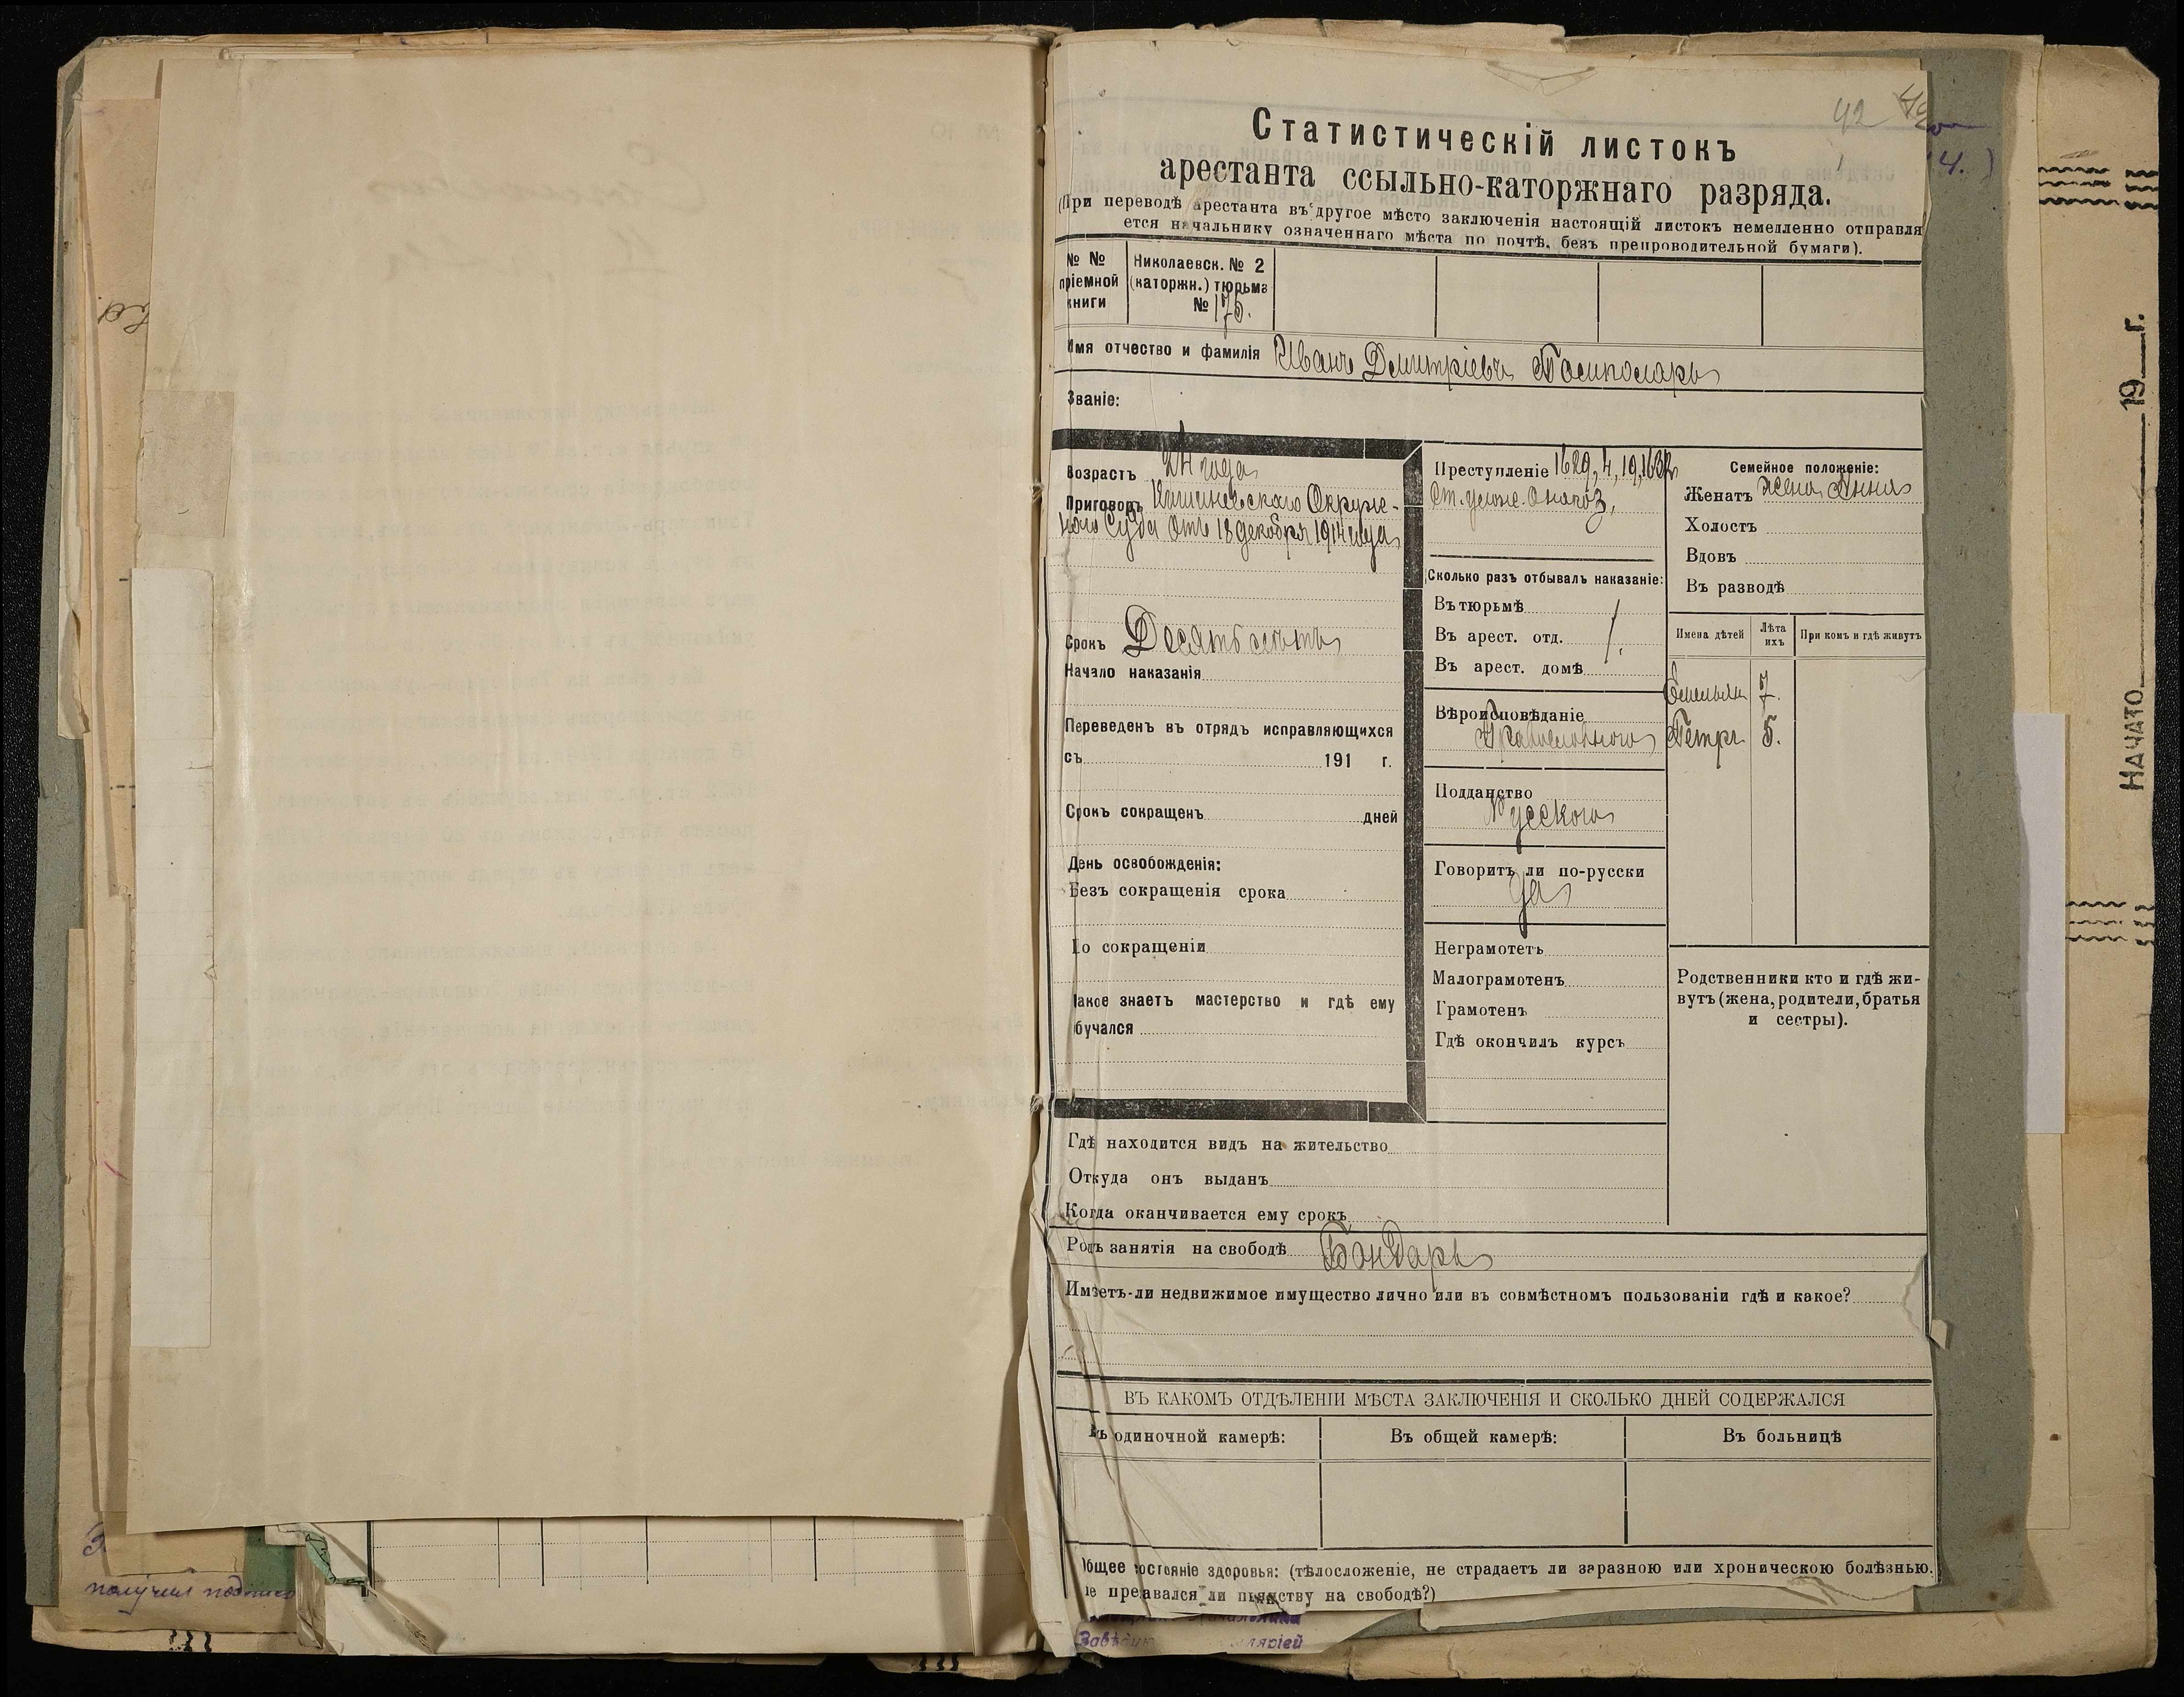 42
4.)
Статистическій листокъ
арестанта ссыльно-каторжнаго разряда.
(При переводѣ арестанта въ другое мѣсто заключенія настоящій листокъ немедленно отправля
ется начальнику означеннаго мѣста по почтѣ, безъ препроводительной бумаги).
№ №
пріемной
книги
Николаевск. № 2
(каторжн.) тюрьма
№ 175.
Имя отчество и фамилія Иванъ Дмитріевъ
Званіе:
Возрастъ 24 года
Приговоръ Кишиневскаго Окруж-
наго Суда отъ 18 декабря 1914 года
Срокъ Десять лѣтъ
Начало наказанія
Переведенъ въ отрядъ исправляющихся
съ 191 г.
Срокъ сокращенъ дней
День освобожденія:
Безъ сокращенія срока
По сокращеніи
Какое знаетъ мастерство и гдѣ ему
обучался
Преступленіе 1629, 4, 19, 1632
ст. улож. о наказ,
Сколько разъ отбывалъ наказаніе:
Въ тюрьмѣ
Въ арест. отд.
Въ арест. домѣ
Вѣроисповѣданіе
Православнаго
Подданство
Русскаго
Говоритъ ли по-русски
да
Неграмотетъ
Малограмотенъ
Грамотенъ
Гдѣ окончилъ курсъ
Семейное положеніе:
Женатъ жена Анна
Холостъ
Вдовъ
Въ разводѣ
Имена дѣтей Лѣта ихъ При комъ и гдѣ живутъ
Емельян 7.
Петръ 5.
Родственники кто и гдѣ жи-
вутъ (жена, родители, братья
и сестры).
Гдѣ находится видъ на жительство
Откуда онъ выданъ
Когда оканчивается ему срокъ
Родъ занятія на свободѣ Бондарь
Имѣетъ-ли недвижимое имущество лично или въ совмѣстномъ пользованіи гдѣ и какое?
ВЪ КАКОМЪ ОТДѢЛЕНІИ МѢСТА ЗАКЛЮЧЕНІЯ И СКОЛЬКО ДНЕЙ СОДЕРЖАЛСЯ
Въ одиночной камерѣ: Въ общей камерѣ: Въ больницѣ
Общее состояніе здоровья: (тѣлосложеніе, не страдаетъ ли заразною или хроническою болѣзнью.
не предавался ли пьянству на свободѣ?)
получил
НАЧАТО 19 г.